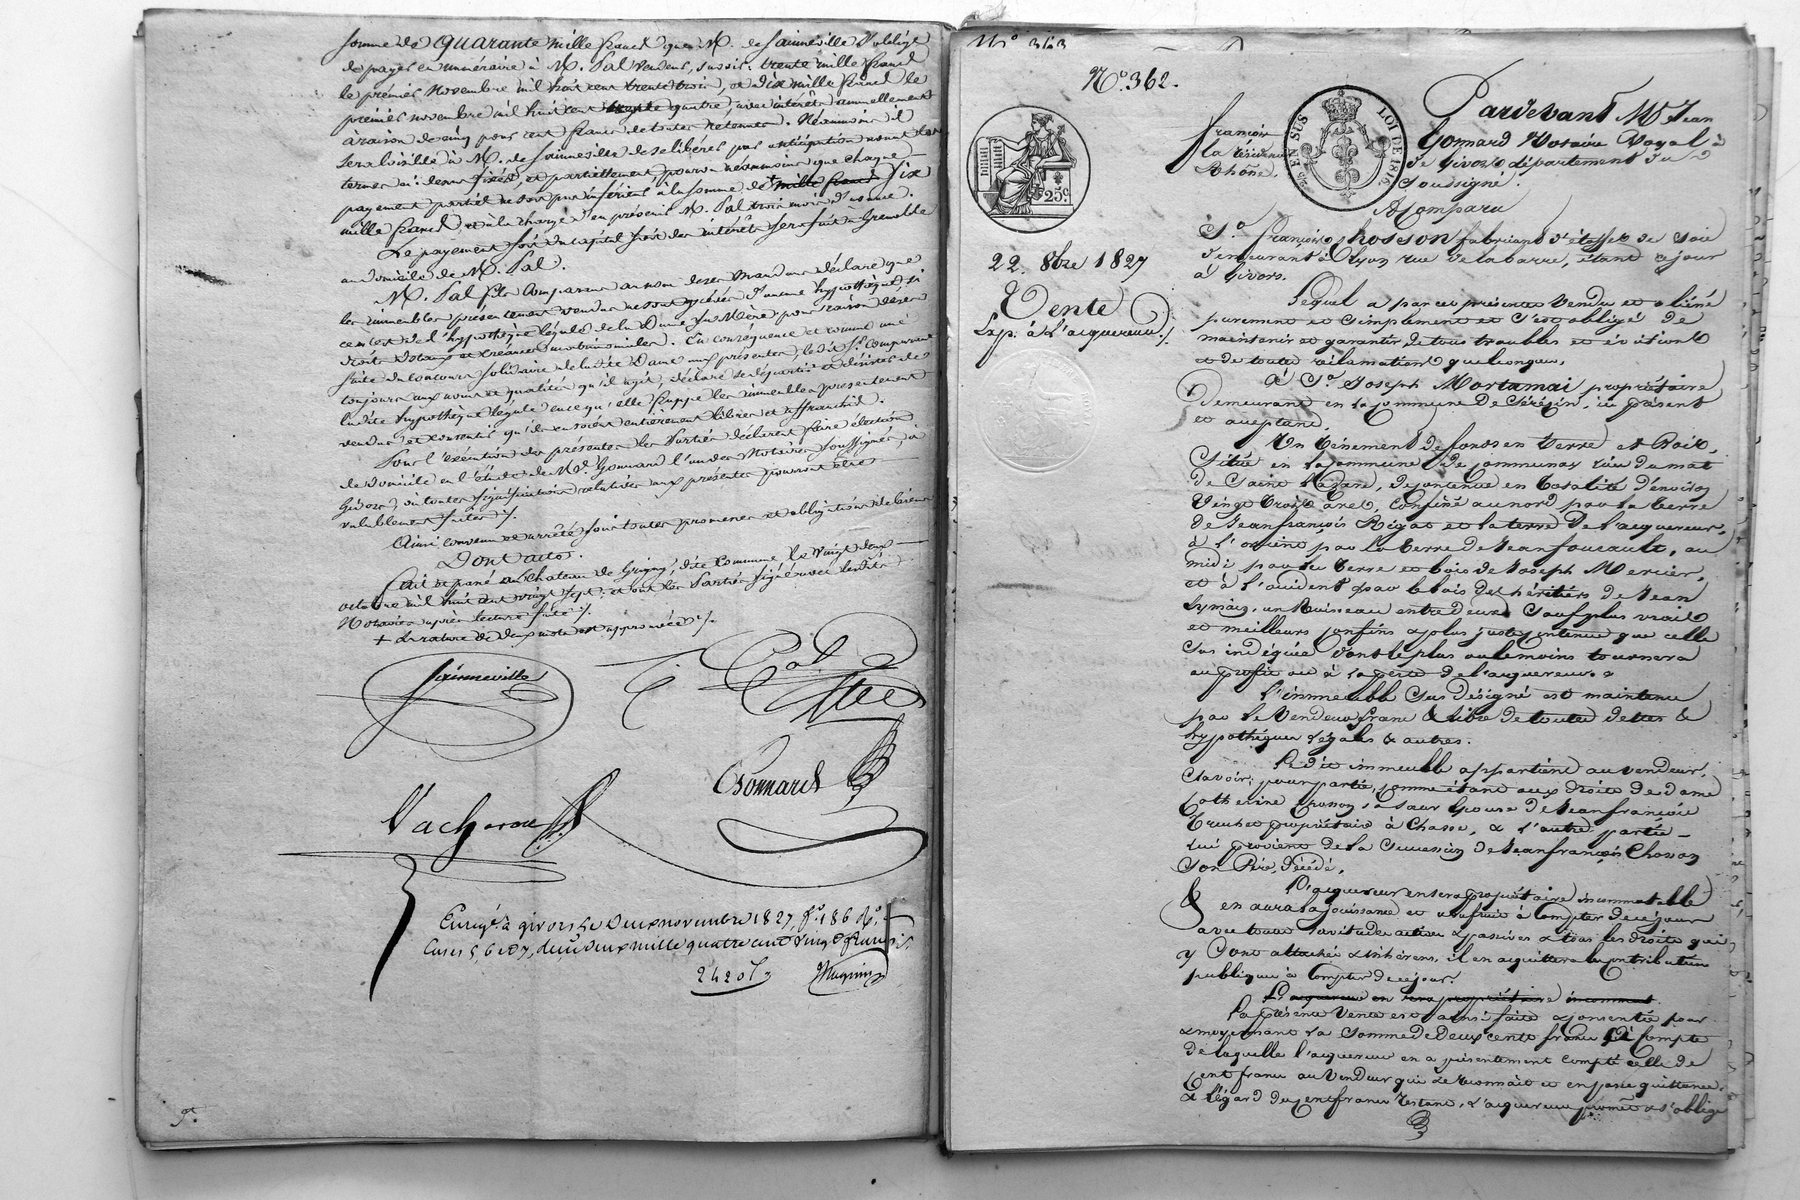 somme de quarante mille francs que M. de Sainneville s'oblige
de payer en numéraire à M. Pal vendeur, savoir: trente mille francs
le premier novembre mil huit cent trente trois, et dix mille francs le
premier novembre mil huit cent trente quatre, avec intérêts annuellement
à raison de cinq pour cent francs de toutes retenues. Néanmoins il
sera loisible à M. de Sainneville de se libérer par anticipation avant les
termes ci-dessus fixés, et partiellement, pourvu néanmoins que chaque
payement partiel ne soit pas inférieur à la somme de + mille francs dix
mille francs, et à la charge d'en prévenir M. Pal trois mois d'avance.
Le payement soit du capital soit des intérêts sera fait à Grenoble
au domicile de M. Pal.
M. Pal fils comparant au nom de ses mandans déclare que
les immeubles présentement vendus ne sont grévés d'aucune hypothèque, si
ce n'est de l'hypothèque légale de la Dame sa Mère pour raison de ses
droits dotaux et créances matrimoniales. En conséquence et comme une
suite du concours solidaire de la dite Dame aux présentes, le dit Sr. comparant
toujours aux noms et qualités qu'il agit, déclare se départir et désister de
la dite hypothèque légale en ce qu'elle frappe les immeubles présentement
vendus, et consentir qu'ils en soient entièrement libres et affranchis.
Pour l'exécution des présentes les Parties déclarent faire élection
de domicile en l'étude de Me. Gonnard l'un des Notaires soussignés à
Givors, où toutes significations relatives aux présentes pourront être
valablement faites ./.
Ainsi convenu et arrêté sous toutes promesses et obligations de biens
Dont acte.
Fait et passé au Chateau de Grigny, dite commune le vingt deux
octobre mil huit cent vingt sept: et ont les Parties signé avec lesdits
Notaires après lecture faite ./.
+ La rature de deux mots est approuvée ./.
Sainneville
Pal
Gonnard
Vacheron
Enregt. à givors le deux novembre 1827, fo. 186 Ro.
Cases 5, 6 et 7, reçu deux mille quatre cent vingt francs
2420 f
No 363
No 362.
25 c.
EN SUS
LOI DE 1816
22. 8bre 1827
Vente
Exp. à l'acquereur ./.
Pardevant Me Jean
françois Gonnard Notaire Royal à
la résidence de Givors département du
Rhône, soussigné.
A Comparu
Sr. françois Chosson fabricant d'étoffes de soie
demeurant à Lyon rue de la barre, étant ce jour
à Givors.
Lequel a par ces présentes vendu et aliéné
purement et simplement et s'est obligé de
maintenir et garantir de tous troubles et évictions
et de toute réclamations quelconques,
à Sr. Joseph Mortamai propriétaire
demeurant en la commune de Sérézin, ici présent
et acceptant.
Un ténement de fonds en terre et Bois,
Situé en la commune de communay lieu du mas
de Saint Lazare, de contenue en totalité d'environ
Vingt trois ares, confiné au nord par la terre
de Jean françois Rigat et la terre de l'acquereur,
à l'orient par la terre de Jean foucault, au
midi par les terre et bois de Joseph Mercier,
et à l'occident par le bois des héritiers de Jean
Lymain, un Ruisseau entre deux, Sauf plus vrais
et meilleurs confins et plus juste contenue que celle
Sus indiquée dont le plus ou le moins tournera
au profit ou à la perte de l'acquereur.
L'immeuble Sus désigné est maintenu
par le Vendeur franc & libre de toutes dettes &
hypothèques légales & autres.
Ledit immeuble appartient au vendeur,
Savoir: pour partie, comme étant aux droits de dame
Catherine Chosson sa sœur épouse de Jean françois
Truchet propriétaire à Chasse, & l'autre partie
lui provient de la succession de Jean françois Chosson
Son Père, décédé.
L'acquereur en sera propriétaire incommutable
& en aura la jouissance et usufruit à compter de ce jour
avec toute servitudes actives & passives & tous les droits qui
y sont attachés & inhérens, il en acquittera les contributions
publiques à compter de ce jour.
L'acquereur en sera propriétaire incommut.
La présente Vente est ainsi faite & consentie pour
& moyennant la Somme de Deux cents francs à compte
de laquelle l'acquereur en a présentement compté celle de
Cent francs au Vendeur qui le reconnait et en passe quittance.
& à l'égard des cent francs restant, l'acquereur promet & s'oblige